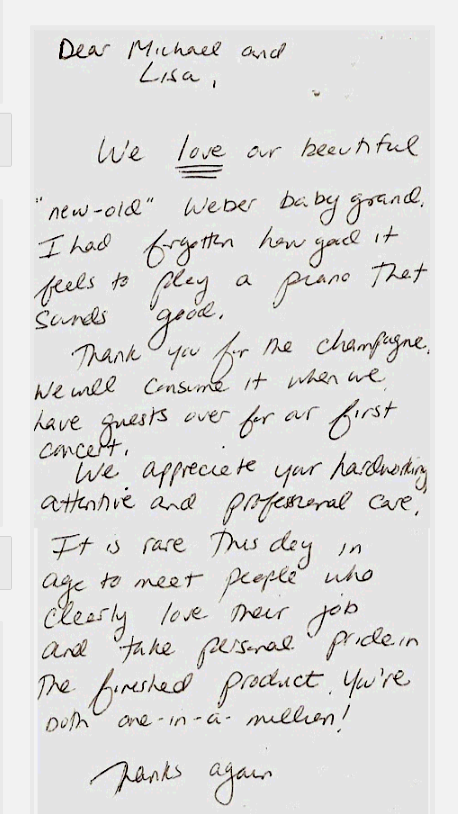 Dear Michael and
Lisa,
We love our beautiful
"new-old" Weber baby grand.
I had forgotten how good it
feels to play a piano that
sounds good.
Thank you for the champagne.
We will consume it when we
have guests over for our first
concert.
We appreciate your hardworking,
attentive and professional care.
It is rare this day in
age to meet people who
clearly love their job
and take personal pride in
the finished product. You're
both one-in-a-million!
Thanks again